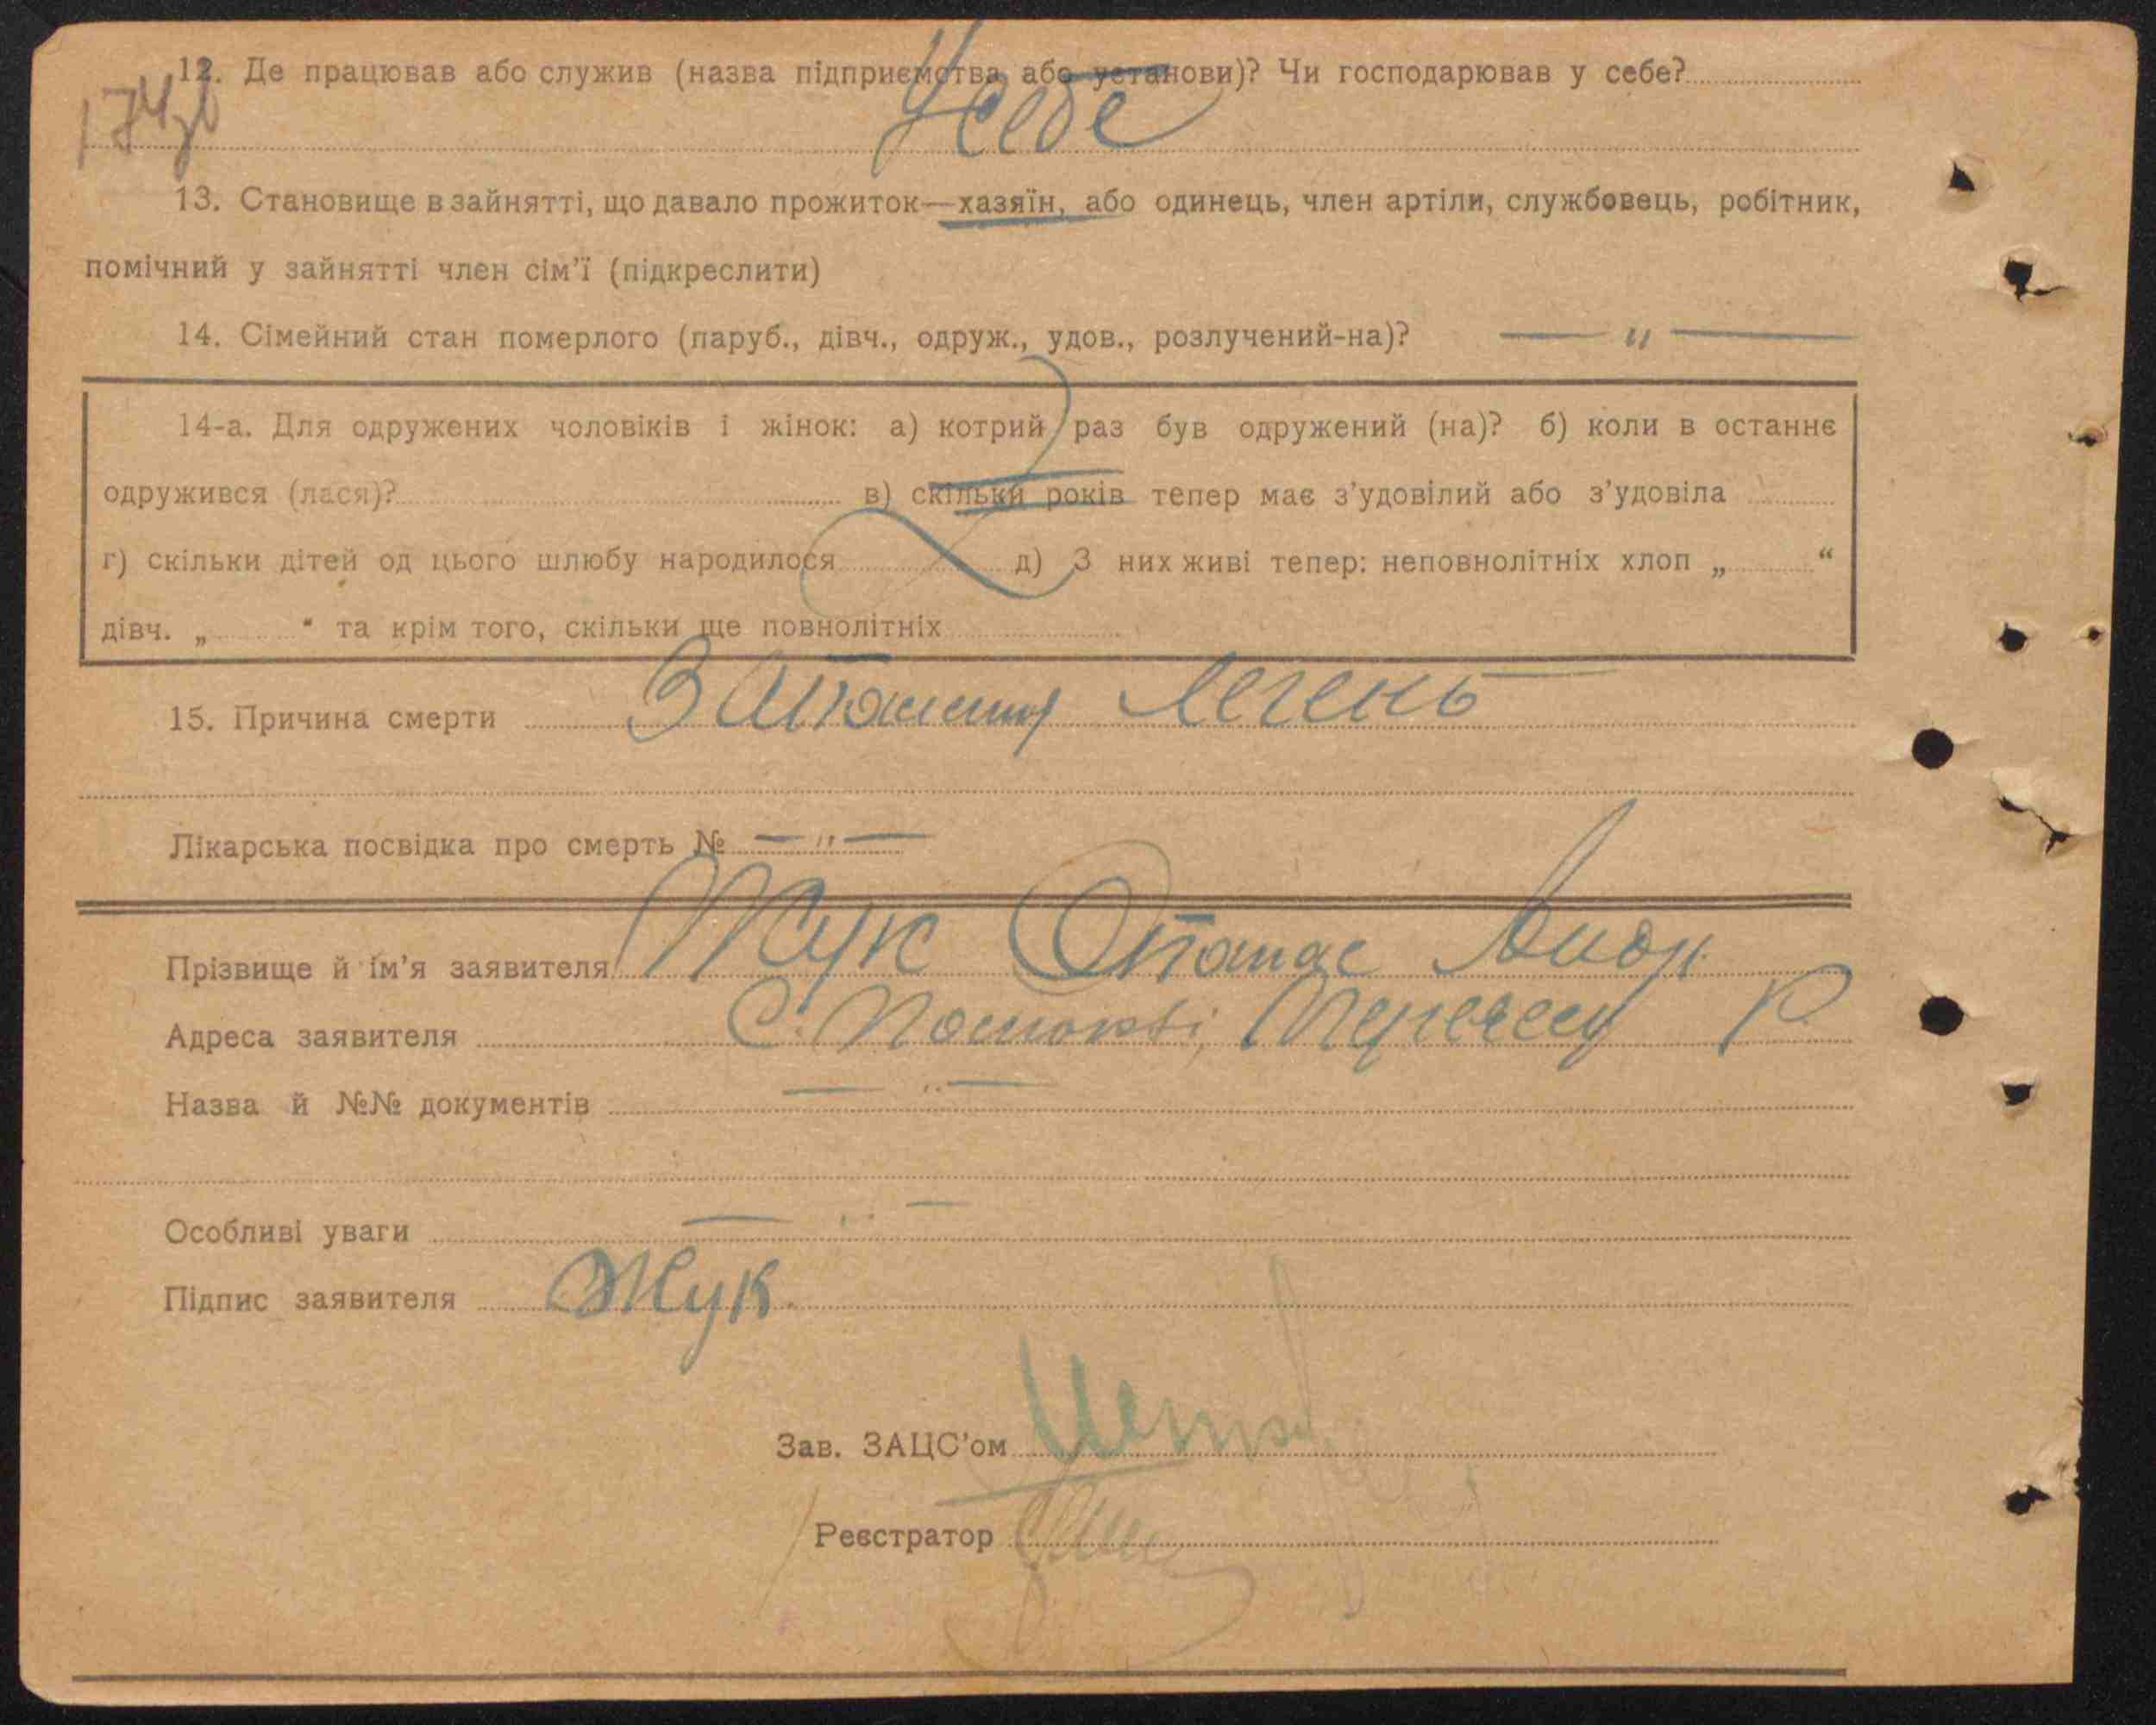 174зв
12. Де працював або служив (назва підприємства або установи)? Чи господарював у себе?
У себе
13. Становище в зайнятті, що давало прожиток—хазяїн, або одинець, член артіли, службовець, робітник,
помічний у зайнятті член сім'ї (підкреслити)
14. Сімейний стан померлого (паруб., дівч., одруж., удов., розлучений-на)? — „ —
14-а. Для одружених чоловіків і жінок: а) котрий раз був одружений (на)? б) коли в останнє
одружився (лася)? в) скільки років тепер має з'удовілий або з'удовіла
г) скільки дітей од цього шлюбу народилося д) З них живі тепер: неповнолітніх хлоп „ “
дівч. „ “ та крім того, скільки ще повнолітніх
15. Причина смерти Запаления легень
Лікарська посвідка про смерть № — „ —
Прізвище й ім'я заявителя Жук Опанас Андр.
Адреса заявителя С. Р
Назва й №№ документів — „ —
Особливі уваги — „ —
Підпис заявителя Жук.
Зав. ЗАЦС'ом
Реєстратор